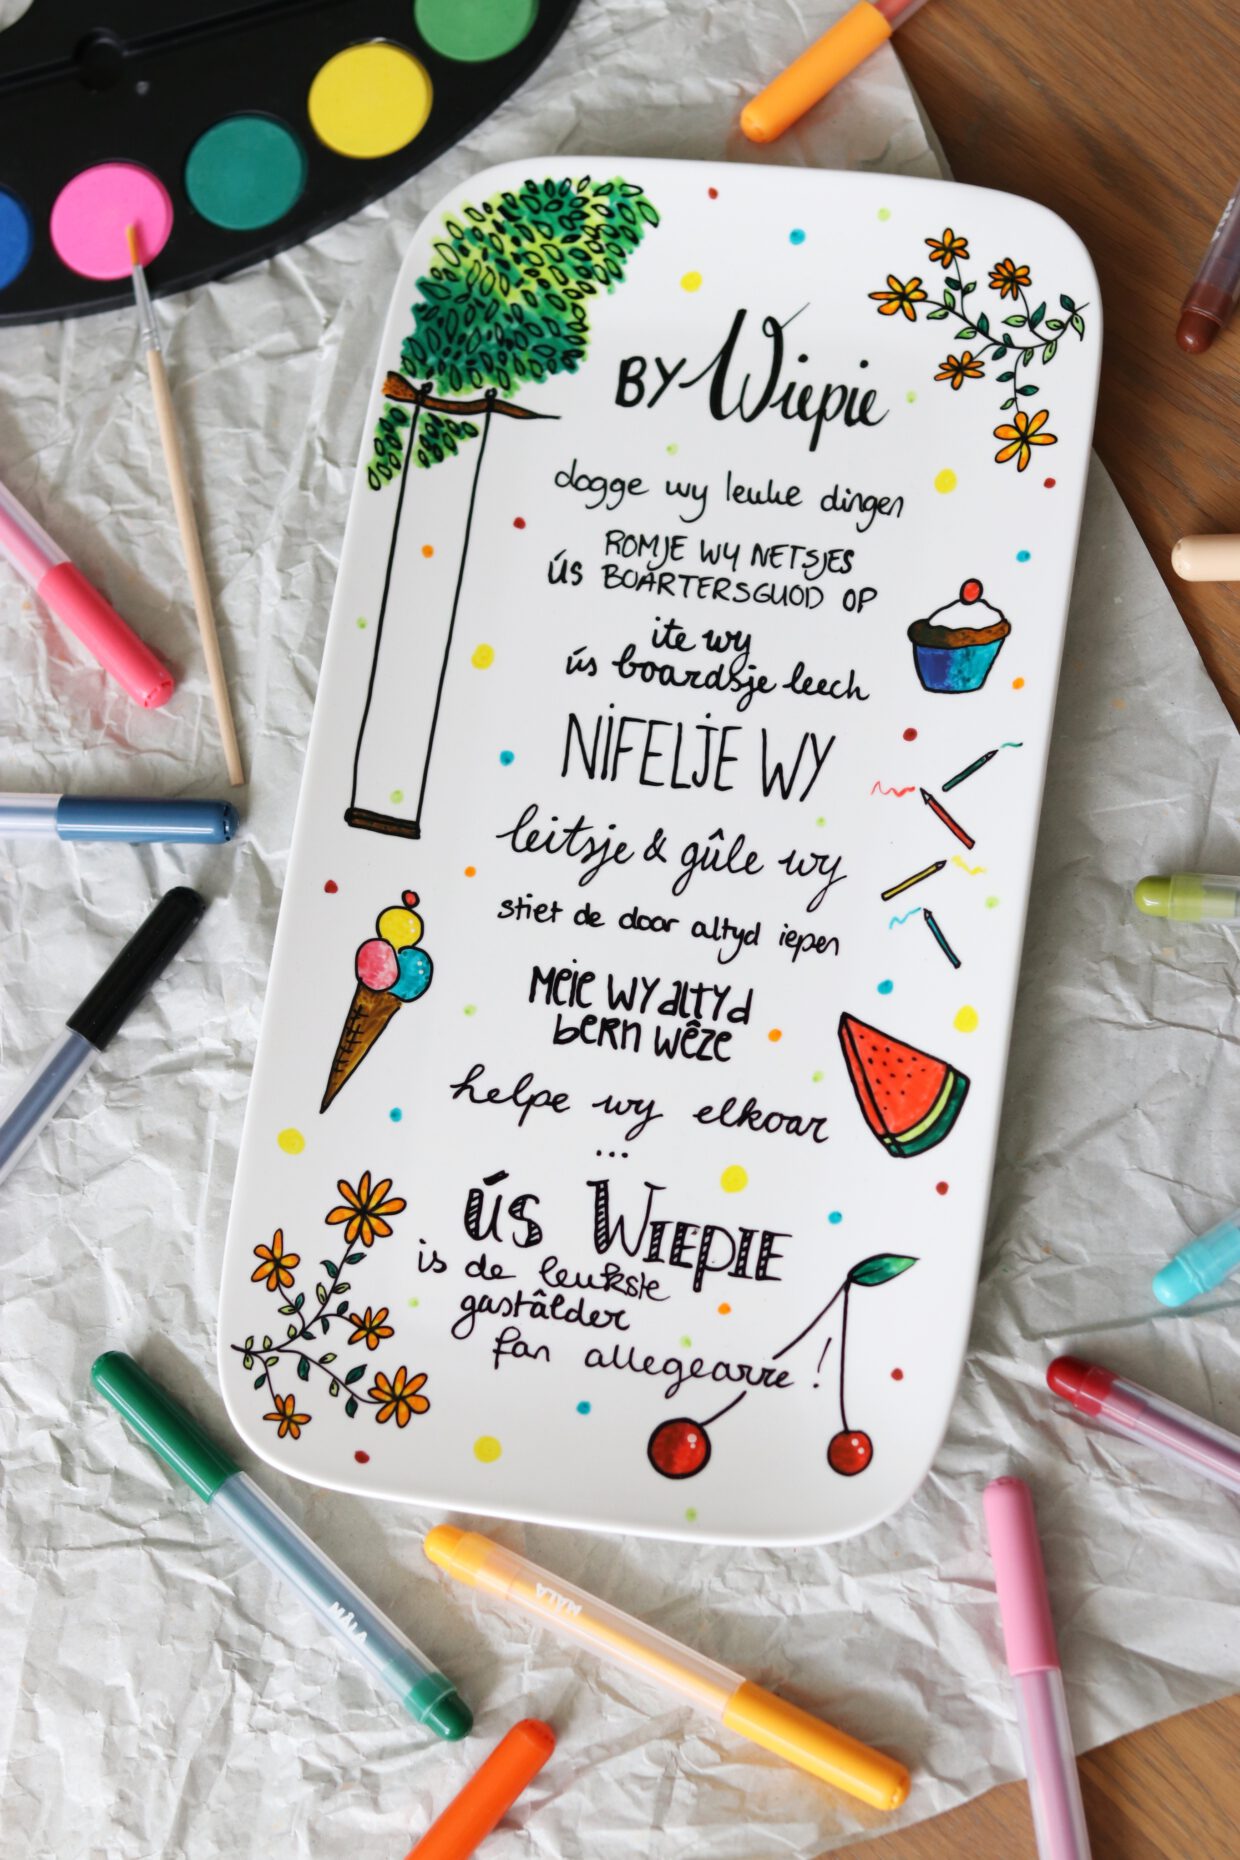 BY Wiepie
dogge wy leuke dingen
ROMJE WY NETSJES
ÚS BOARTERSGUOD OP
ite wy
ús boardsje leech
NIFELJE WY
leitsje & gûle wy
stiet de doar altyd iepen
Meie wy altyd
bern wêze
helpe wy elkoar
...
ÚS WIEPIE
is de leukste
gastâlder
fan allegearre!
MÅLA
MÅLA